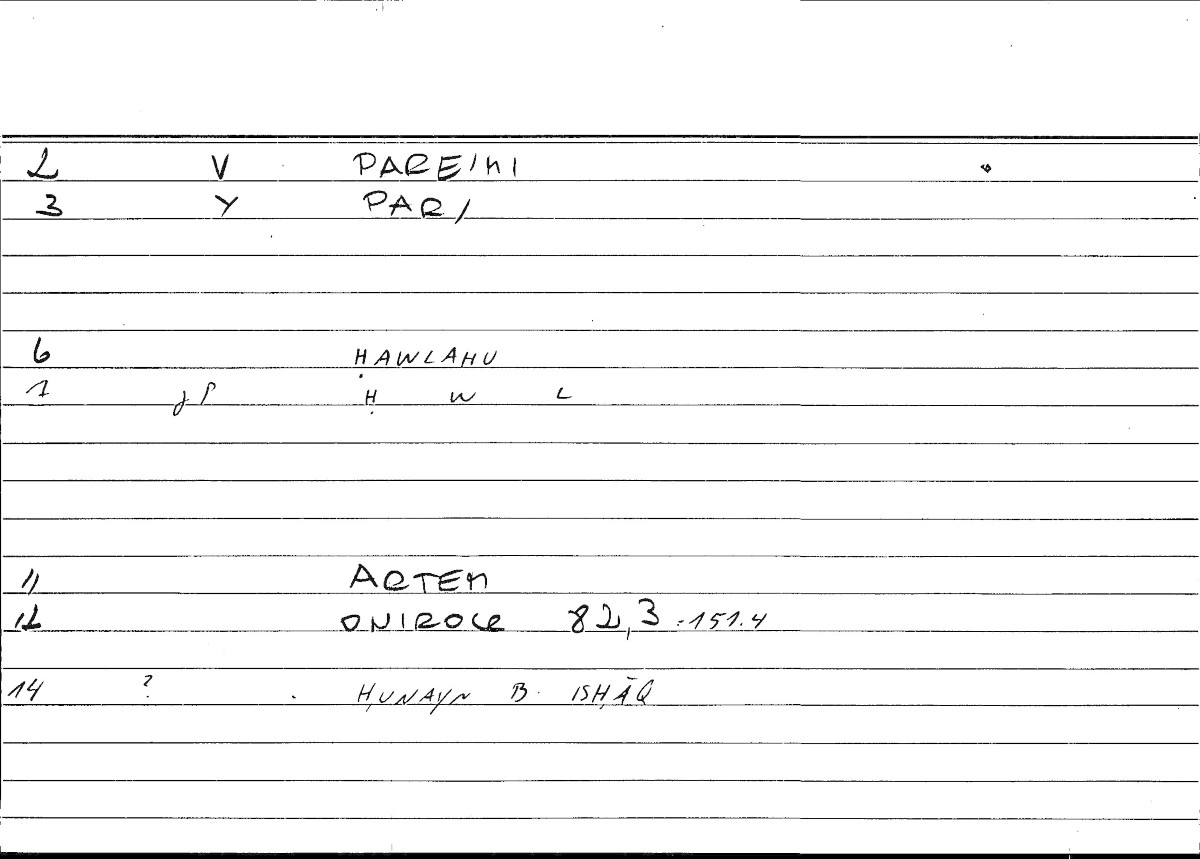 2 V PAREINI
3 Y PAR/
6 ḤAWLAHU
7 gP Ḥ W L
11 ARTEM
12 ONIROCR 82,3-151.4
14 ? ḤUNAYN B. ISḤĀQ